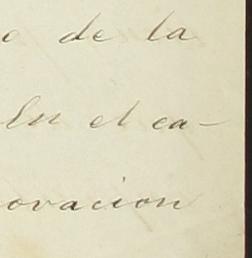 o de la
En el ca-
ovacion